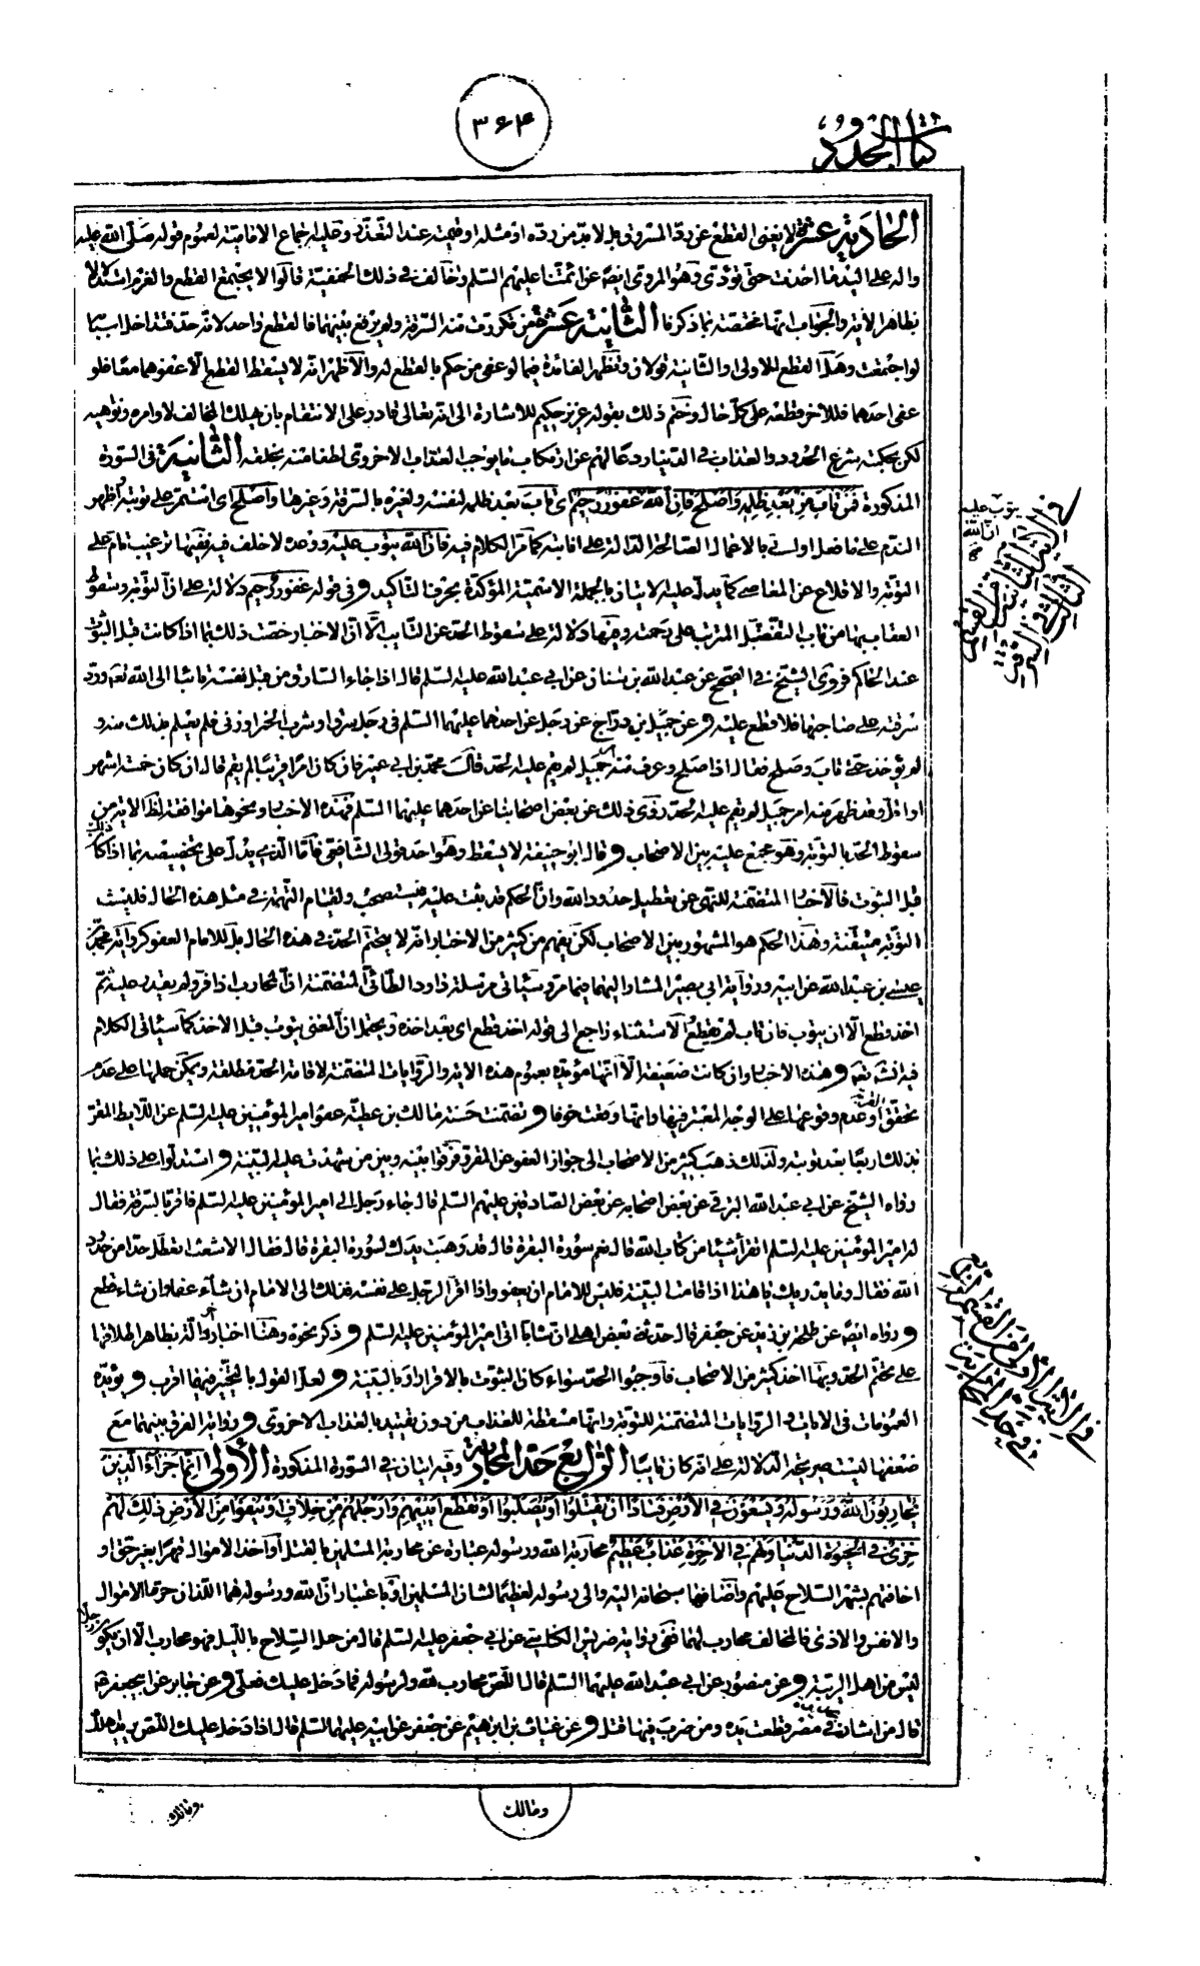 كتاب الحدود
٣٦٤
الحادية عشرة لا يغنى القطع عن ردّ المسروق بل لا بدّ من ردّه او مثله او قيمته عند التعذّر وعليه إجماع الاماميّة لعموم قوله صلّى الله عليه
واله على اليد ما اخذت حتى تؤدّى وهو المروىّ ايضا عن ائمّتنا عليهم السّلم وخالف في ذلك الحنفيّة قالوا لا يجتمع القطع والغرم استدلالا
بظاهر الاية والجواب انّها مخصّصة بما ذكرنا الثانية عشرة من تكررت منه السرقة ولم يرفع بينهما فالقطع واحد لانّه حدّ فتداخل اسبابه
لو اجتمعت وهل القطع للاولى او الثّانية قولان وتظهر الفائدة فيما لو عفى من حكم بالقطع له والأظهر انّه لا يسقط القطع الّا بعفوهما معا فلو
عفى احدهما فللاخر قطعه على كلّ حال وختم ذلك بقوله عزيز حكيم للاشارة الى انّه تعالى قادر على الانتقام بان يهلك المخالف لاوامره ونواهيه
لكن بحكمته شرع الحدود والعذاب في الدّنيا ردعا لهم عن ارتكاب ما يوجب العذاب الاخروى لطفا منه بخلقه الثّانية في السّورة
المذكورة فمن تاب من بعد ظلمه واصلح فإنّ الله غفور رحيم اى تاب بعد ظلمه لنفسه ولغيره بالسرقة وغيرها واصلح اى استمرّ على توبته او اظهر
النّدم على ما فعل او اتى بالاعمال الصّالحة الدّالة على انابته كما مرّ الكلام فيه فانّ الله يتوب عليه ووعده لا خلف فيه ففيها ترغيب تامّ على
التّوبة والاقلاع عن المعاصى كما يدلّ عليه الاتيان بالجملة الاسميّة المؤكّدة بحرف التّاكيد وفى قوله غفور رحيم دلالة على انّ التّوبة وسقوط
العقاب بها من باب التّفضّل المرتّب على رحمته ومنها دلالة على سقوط الحدّ عن التّايب الّا انّ الاخبار خصّت ذلك بما اذا كانت قبل الثّبوت
عند الحاكم فروى الشّيخ في الصحيح عن عبد الله بن سنان عن ابى عبد الله عليه السّلم قال اذا جاء السارق من قبل نفسه تائبا الى الله تعالى وردّ
سرقته على صاحبها فلا قطع عليه وعن جميل بن درّاج عن رجل عن احدهما عليهما السّلم في رجل سرق او شرب الخمر او زنى فلم يعلم بذلك منه و
لم يؤخذ حتّى تاب وصلح فقال اذا صلح وعرف منه امر جميل لم يقم عليه الحدّ قال محمّد بن ابى عمير فان كان امرا قريبا لم يقم قال ان كان خمسة اشهر
او اقلّ وقد ظهر منه امر جميل لم يقم عليه الحدّ روى ذلك عن بعض اصحابنا عن احدهما عليهما السّلم فهذه الاخبار ونحوها موافقة لظاهر الاية من
سقوط الحدّ بالتّوبة وهو مجمع عليه بين الاصحاب وقال ابو حنيفة لا يسقط وهو احد قولى الشّافعى فأمّا الّذى يدلّ على تخصيصه بما اذا كان ذلك
قبل الثبوت فالأخبار المتضمّنة للنّهى عن تعطيل حدود الله وانّ الحكم قد ثبت عليه فيستصحب ولقيام التّهمة في مثل هذه الحال فليست
التّوبة متيقّنة وهذا الحكم هو المشهور بين الاصحاب لكن يفهم من كثير من الاخبار انّه لا يتحتّم الحدّ في هذه الحال بل للامام العفو كرواية محمّد بن
عيسى بن عبد الله عن ابيه ورواية ابى بصير المشار اليهما فيما مرّ وسيأتى مرسلة داود الطّائى المتضمّنة انّ المحارب اذا فرّ ولم يقدر عليه ثمّ
اخذ قطع الّا ان يتوب فان تاب لم يقطع الاستثناء راجع الى قوله اخذ قطع اى بعد اخذه ويحتمل انّ المعنى يتوب قبل الاخذ كما سيأتى الكلام
فيه انشاء الله وهذه الاخبار وان كانت ضعيفة الّا انّها مؤيّدة بعموم هذه الاية والرّوايات المتضمّنة لاقامة الحدّ مطلقة ويمكن حملها على عدم
تحقّق التّوبة او عدم وقوعها على الوجه المعتبر فيها وانّما وقعت خوفا وتضمّنت حسنة مالك بن عطيّة عفو امير المؤمنين عليه السّلم عن اللّايط المقرّ
بذلك اربعا بعد توبته ولذلك ذهب كثير من الاصحاب الى جواز العفو عن المقرّ وفرّقوا بينه وبين من شهدت عليه البيّنة واستدلّوا على ذلك بما
رواه الشّيخ عن ابى عبد الله البرقى عن بعض اصحابه عن بعض الصّادقين عليهم السّلم قال جاء رجل الى امير المؤمنين عليه السّلم فاقرّ بالسّرقة فقال
له امير المؤمنين عليه السّلم اتقرأ شيئا من كتاب الله قال نعم سورة البقرة قال قد وهبت يدك لسورة البقرة قال فقال الاشعث اتعطّل حدّا من حدود
الله فقال وما يدريك يا هذا اذا قامت البيّنة فليس للامام ان يعفو واذا اقرّ الرّجل على نفسه فذلك الى الامام ان شاء عفا وان شاء قطع
ورواه ايضا عن طلحة بن زيد عن جعفر قال حدّثنى بعض اهلى انّ شابّا اتى امير المؤمنين عليه السّلم وذكر نحوه وهنا اخبار اخر دالّة بظاهر اطلاقها
على تحتّم الحدّ وبها اخذ كثير من الاصحاب فأوجبوا الحدّ سواء كان الثّبوت بالاقرار او بالبيّنة ولعلّ القول بالتّخيير فيهما اقرب ويؤيّده
العمومات في الايات والرّوايات المتضمّنة للتّوبة وانّها مسقطة للعذاب من دون تقييد بالعذاب الاخروى ورواية الفرق بينهما مع
ضعفها ليست صريحة الدّلالة على انّه كان تايبا الرّابع حدّ المحاربة وفيه ايتان في السّورة المذكورة الأولى انّما جزاء الّذين
يحاربون الله ورسوله ويسعون في الأرض فسادا ان يقتّلوا او يصلّبوا او تقطّع ايديهم وارجلهم من خلاف او ينفوا من الأرض ذلك لهم
خزى في الحيوة الدّنيا ولهم في الاخرة عذاب عظيم محاربة الله ورسوله عبارة عن محاربة المسلمين بالقتل أو اخذ الاموال قهرا بغير حقّ او
اخافتهم بشهر السّلاح عليهم واضافها سبحانه اليه والى رسوله تعظيما لشان المسلمين او باعتبار انّ الله ورسوله هما اللّذان حرّما الاموال
والانفس والاذى فالمخالف محارب لهما ففى رواية ضريس الكناسى عن ابى جعفر عليه السّلم قال من حمل السّلاح باللّيل فهو محارب الّا ان يكون رجلا
ليس من اهل الرّيبة وعن منصور عن ابى عبد الله عليهما السّلم قال اللّصّ محارب لله ولرسوله فما دخل عليك فعلىّ وعن جابر عن ابى جعفر
قال من اشار بحديدة في مصر قطعت يده ومن ضرب فيها قتل وعن غياث بن ابراهيم عن جعفر عن ابيه عليهما السّلم قال اذا دخل عليك اللّصّ يريد اهلك
ومالك
ومالك
يتوب عليه
انّ الله
في الاية الثانية من القسم
الثالث في حدّ السرقة
في الاية الأولى من القسم الرابع
وفى حدّ المحاربة